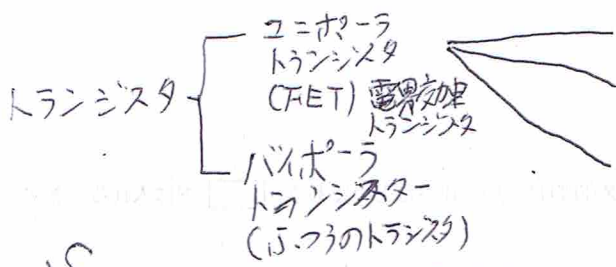 トランジスタ
ユニポーラ
トランジスタ
(FET) 電界効果
トランジスタ
バイポーラ
トランジスター
(ふつうのトランジスタ)